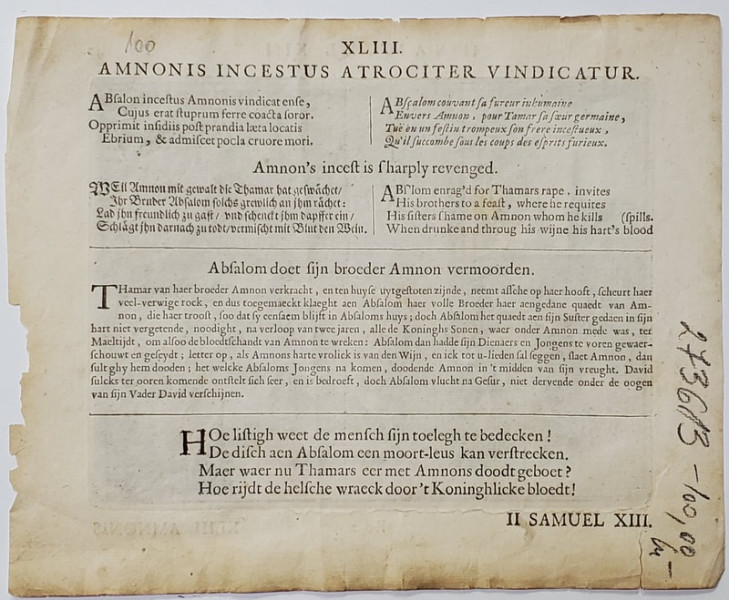 100
XLIII.
AMNONIS INCESTUS ATROCITER VINDICATUR.
ABsalon incestus Amnonis vindicat ense,
Cujus erat stuprum ferre coacta soror.
Opprimit insidiis post prandia læta locatis
Ebrium, & admiscet pocla cruore mori.
ABsçalom couvant sa fureur inhumaine
Envers Amnon, pour Tamar sa sœur germaine,
Tuë en un festin trompeux son frere incestueux,
Qu'il succombe sous les coups des esprits furieux.
Amnon's incest is sharply revenged.
WEil Amnon mit gewalt die Thamar hat geswächet/
Ihr Bruder Absalom solchs grewlich an jhm rächet:
Lad jhn freundlich zu gast/ vnd schenckt jhm dapffer ein/
Schlägt jhn darnach zu todt/ vermischt mit Blut den Wein.
ABs'lom enrag'd for Thamars rape, invites
His brothers to a feast, where he requites
His sisters shame on Amnon whom he kills (spills.
When drunke and throug his wijne his hart's blood
Absalom doet sijn broeder Amnon vermoorden.
THamar van haer broeder Amnon verkracht, en ten huyse uytgestoten zijnde, neemt assche op haer hooft, scheurt haer
veel-verwige rock, en dus toegemaeckt klaeght aen Absalom haer volle Broeder haer aengedane quaedt van Am-
non, die haer troost, soo dat sy eensaem blijft in Absaloms huys; doch Absalom het quaedt aen sijn Suster gedaen in sijn
hart niet vergetende, noodight, na verloop van twee jaren, alle de Koninghs Sonen, waer onder Amnon mede was, ter
Maeltijdt, om alsoo de bloedtschandt van Amnon te wreken: Absalom dan hadde sijn Dienaers en Jongens te voren gewaer-
schouwt en geseydt; letter op, als Amnons harte vrolick is van den Wijn, en ick tot u-lieden sal seggen, slaet Amnon, dan
sult ghy hem dooden; het welcke Absaloms Jongens na komen, doodende Amnon in 't midden van sijn vreught. David
sulcks ter ooren komende ontstelt sich seer, en is bedroeft, doch Absalom vlucht na Gesur, niet dervende onder de oogen
van sijn Vader David verschijnen.
HOe listigh weet de mensch sijn toelegh te bedecken!
De disch aen Absalom een moort-leus kan verstrecken.
Maer waer nu Thamars eer met Amnons doodt geboet?
Hoe rijdt de helsche wraeck door 't Koninghlicke bloedt!
II SAMUEL XIII.